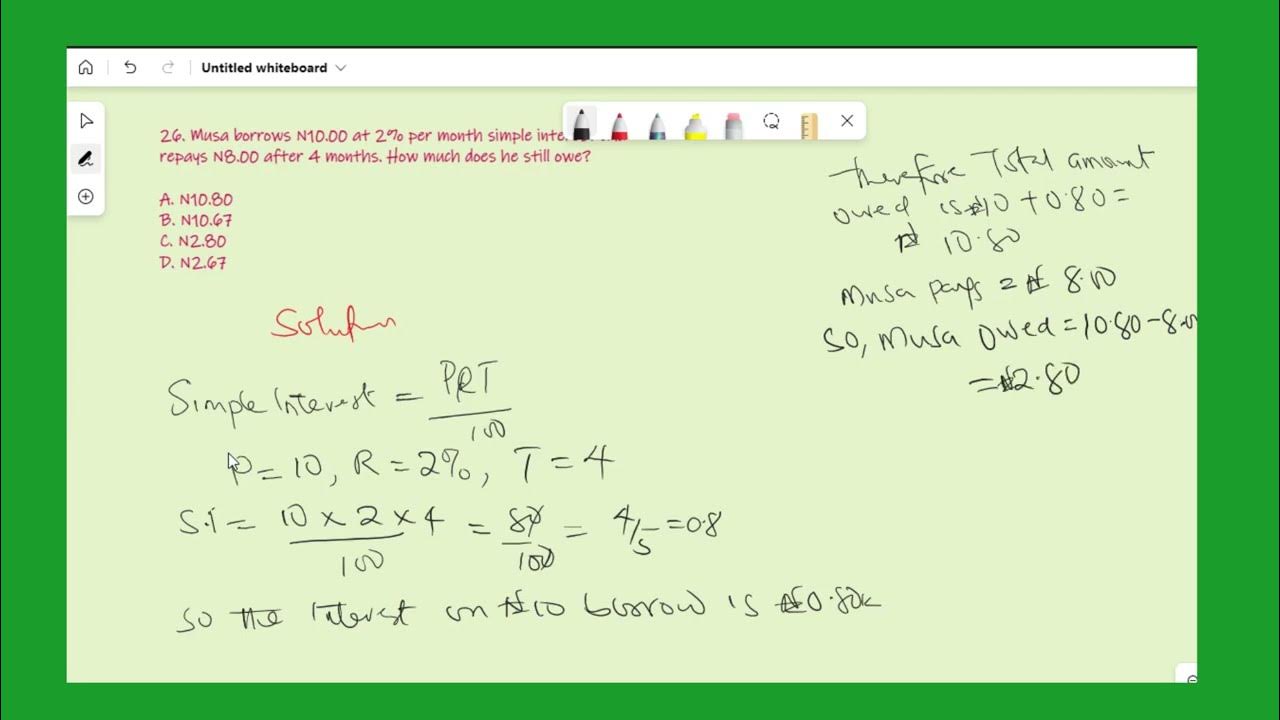 Untitled whiteboard
26. Musa borrows N10.00 at 2% per month simple inte
repays N8.00 after 4 months. How much does he still owe?
A. N10.80
B. N10.67
C. N2.80
D. N2.67
Solution
Simple Interest = PRT
100
P = 10, R = 2%, T = 4
S.I = 10 x 2 x 4 = 80 = 4/5 = 0.8
100 100
so the Interest on ₦10 borrow is ₦0.80k
Therefore Total amount
owed is ₦10 + 0.80 =
₦ 10.80
Musa pays = ₦ 8.00
So, Musa owed = 10.80 - 8.0
= ₦2.80